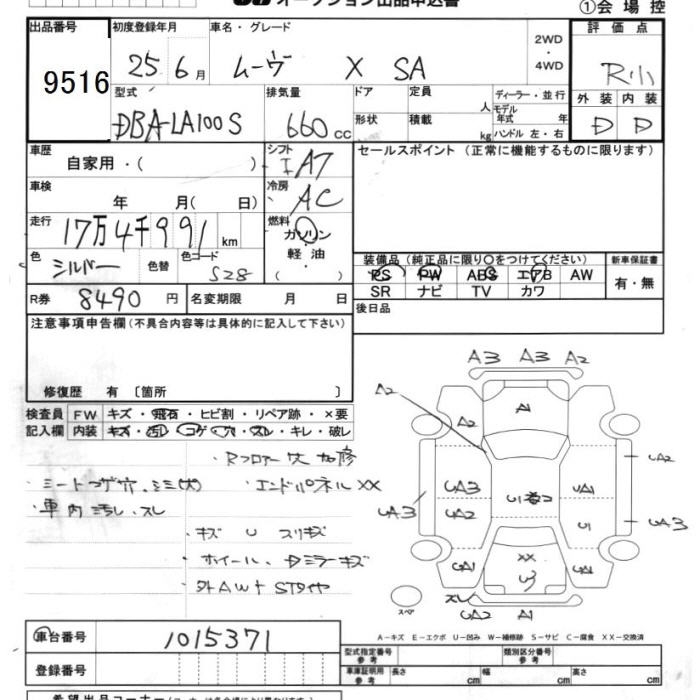 オークション出品申込書
①会場控
出品番号
9516
初度登録年月
25年6月
車名・グレード
ムーヴ X SA
2WD・4WD
評価点
R小
型式
DBA-LA100S
排気量
660cc
ドア
形状
定員 人
積載 kg
ディーラー・並行
モデル年式 年
ハンドル 左・右
外装 内装
D D
車歴
自家用・( )
シフト
IAT
セールスポイント (正常に機能するものに限ります)
車検
年 月( 日)
冷房
AC
走行
17万4千991km
燃料
ガソリン・軽油・( )
色
シルバー
色替
色コード
S28
装備品 (純正品に限り○をつけてください)
新車保証書
PS PW ABS エアB AW
有・無
SR ナビ TV カワ
R券 8490円
名変期限 月 日
後日品
注意事項申告欄(不具合内容等は具体的に記入して下さい)
修復歴 有 〔箇所 〕
検査員記入欄
FW キズ・飛石・ヒビ割・リペア跡・×要
内装 キズ・汚レ・コゲ・穴・スレ・キレ・破レ
・Rフロアー 穴 加修
・シートコゲ穴、シミ(大)
・エンドパネルXX
・車内汚れ、スレ
・キズ U スリキズ
・ホイール、Dミラーキズ
・外AW+STタイヤ
A3 A3 A2
A2
A2
A1
UA2
UA3
UA2
UA3
UA1
U
UA3
XX
U3
UA1
UA1
スペア
スレ
UA2
A1
A-キズ E-エクボ U-凹み W-補修跡 S-サビ C-腐食 XX-交換済
車台番号
1015371
登録番号
型式指定番号 参考
類別区分番号 参考
車庫証明用 参考
長さ cm
幅 cm
高さ cm